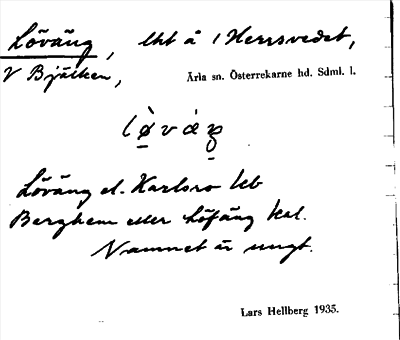 Löväng, lht å Herrsvedet,
V Bjälken, Ärla sn. Österrekarne hd. Sdml. l.
Löväng el. Karlsro leb
Berghem eller Löfäng kal.
Namnet är ungt.
Lars Hellberg 1935.